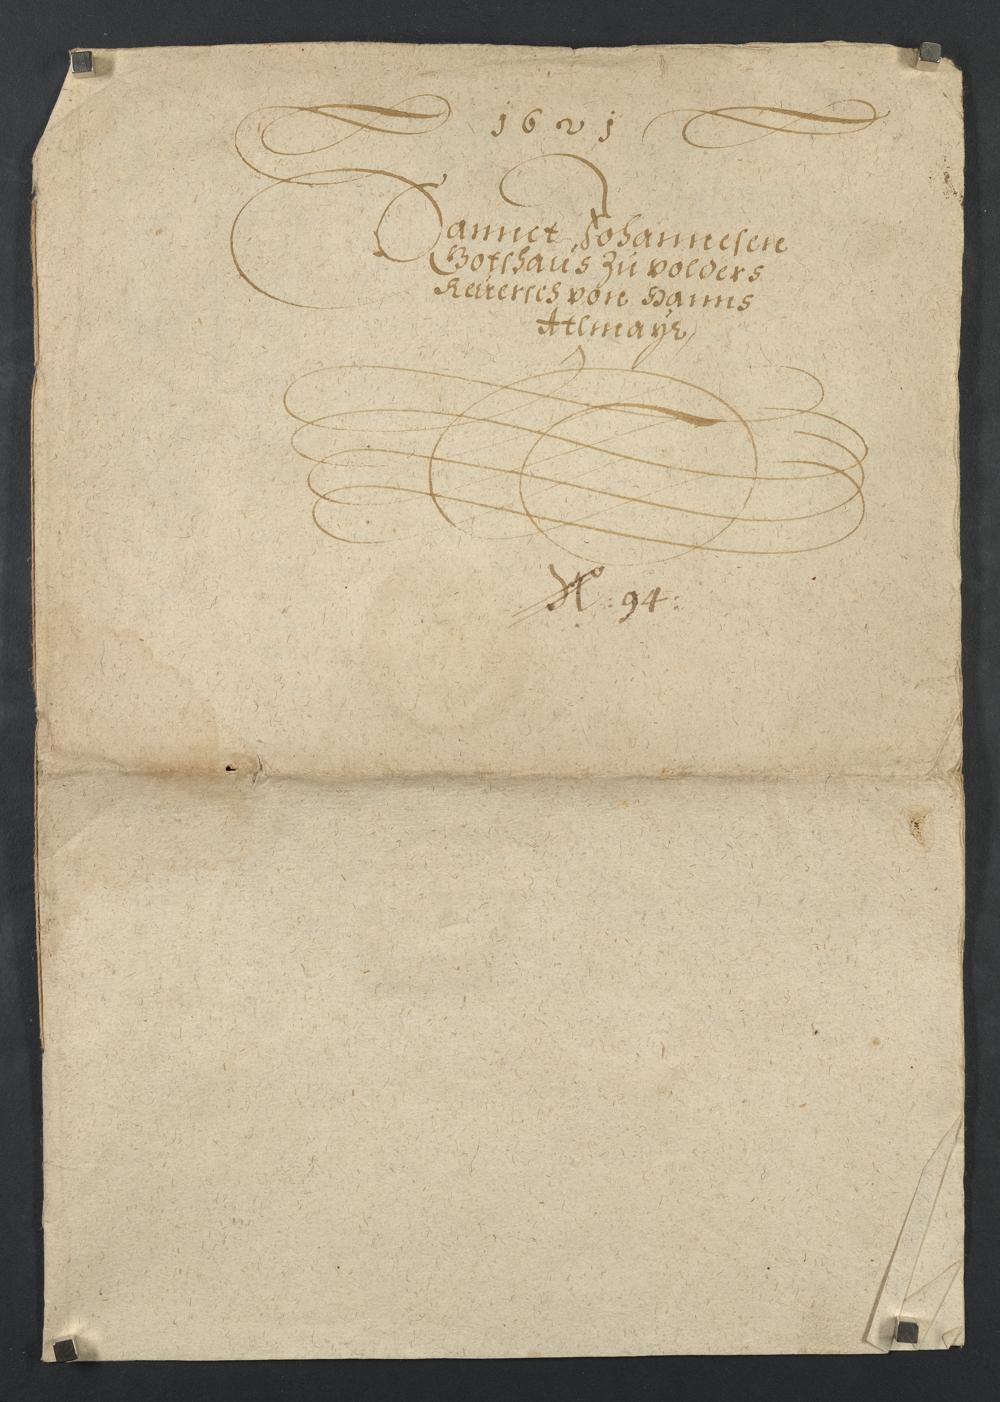 1621
Sannct Johannesen
Gotshaus Zu volders
Reuersch von Hanns
Atlmayr
No: 94: